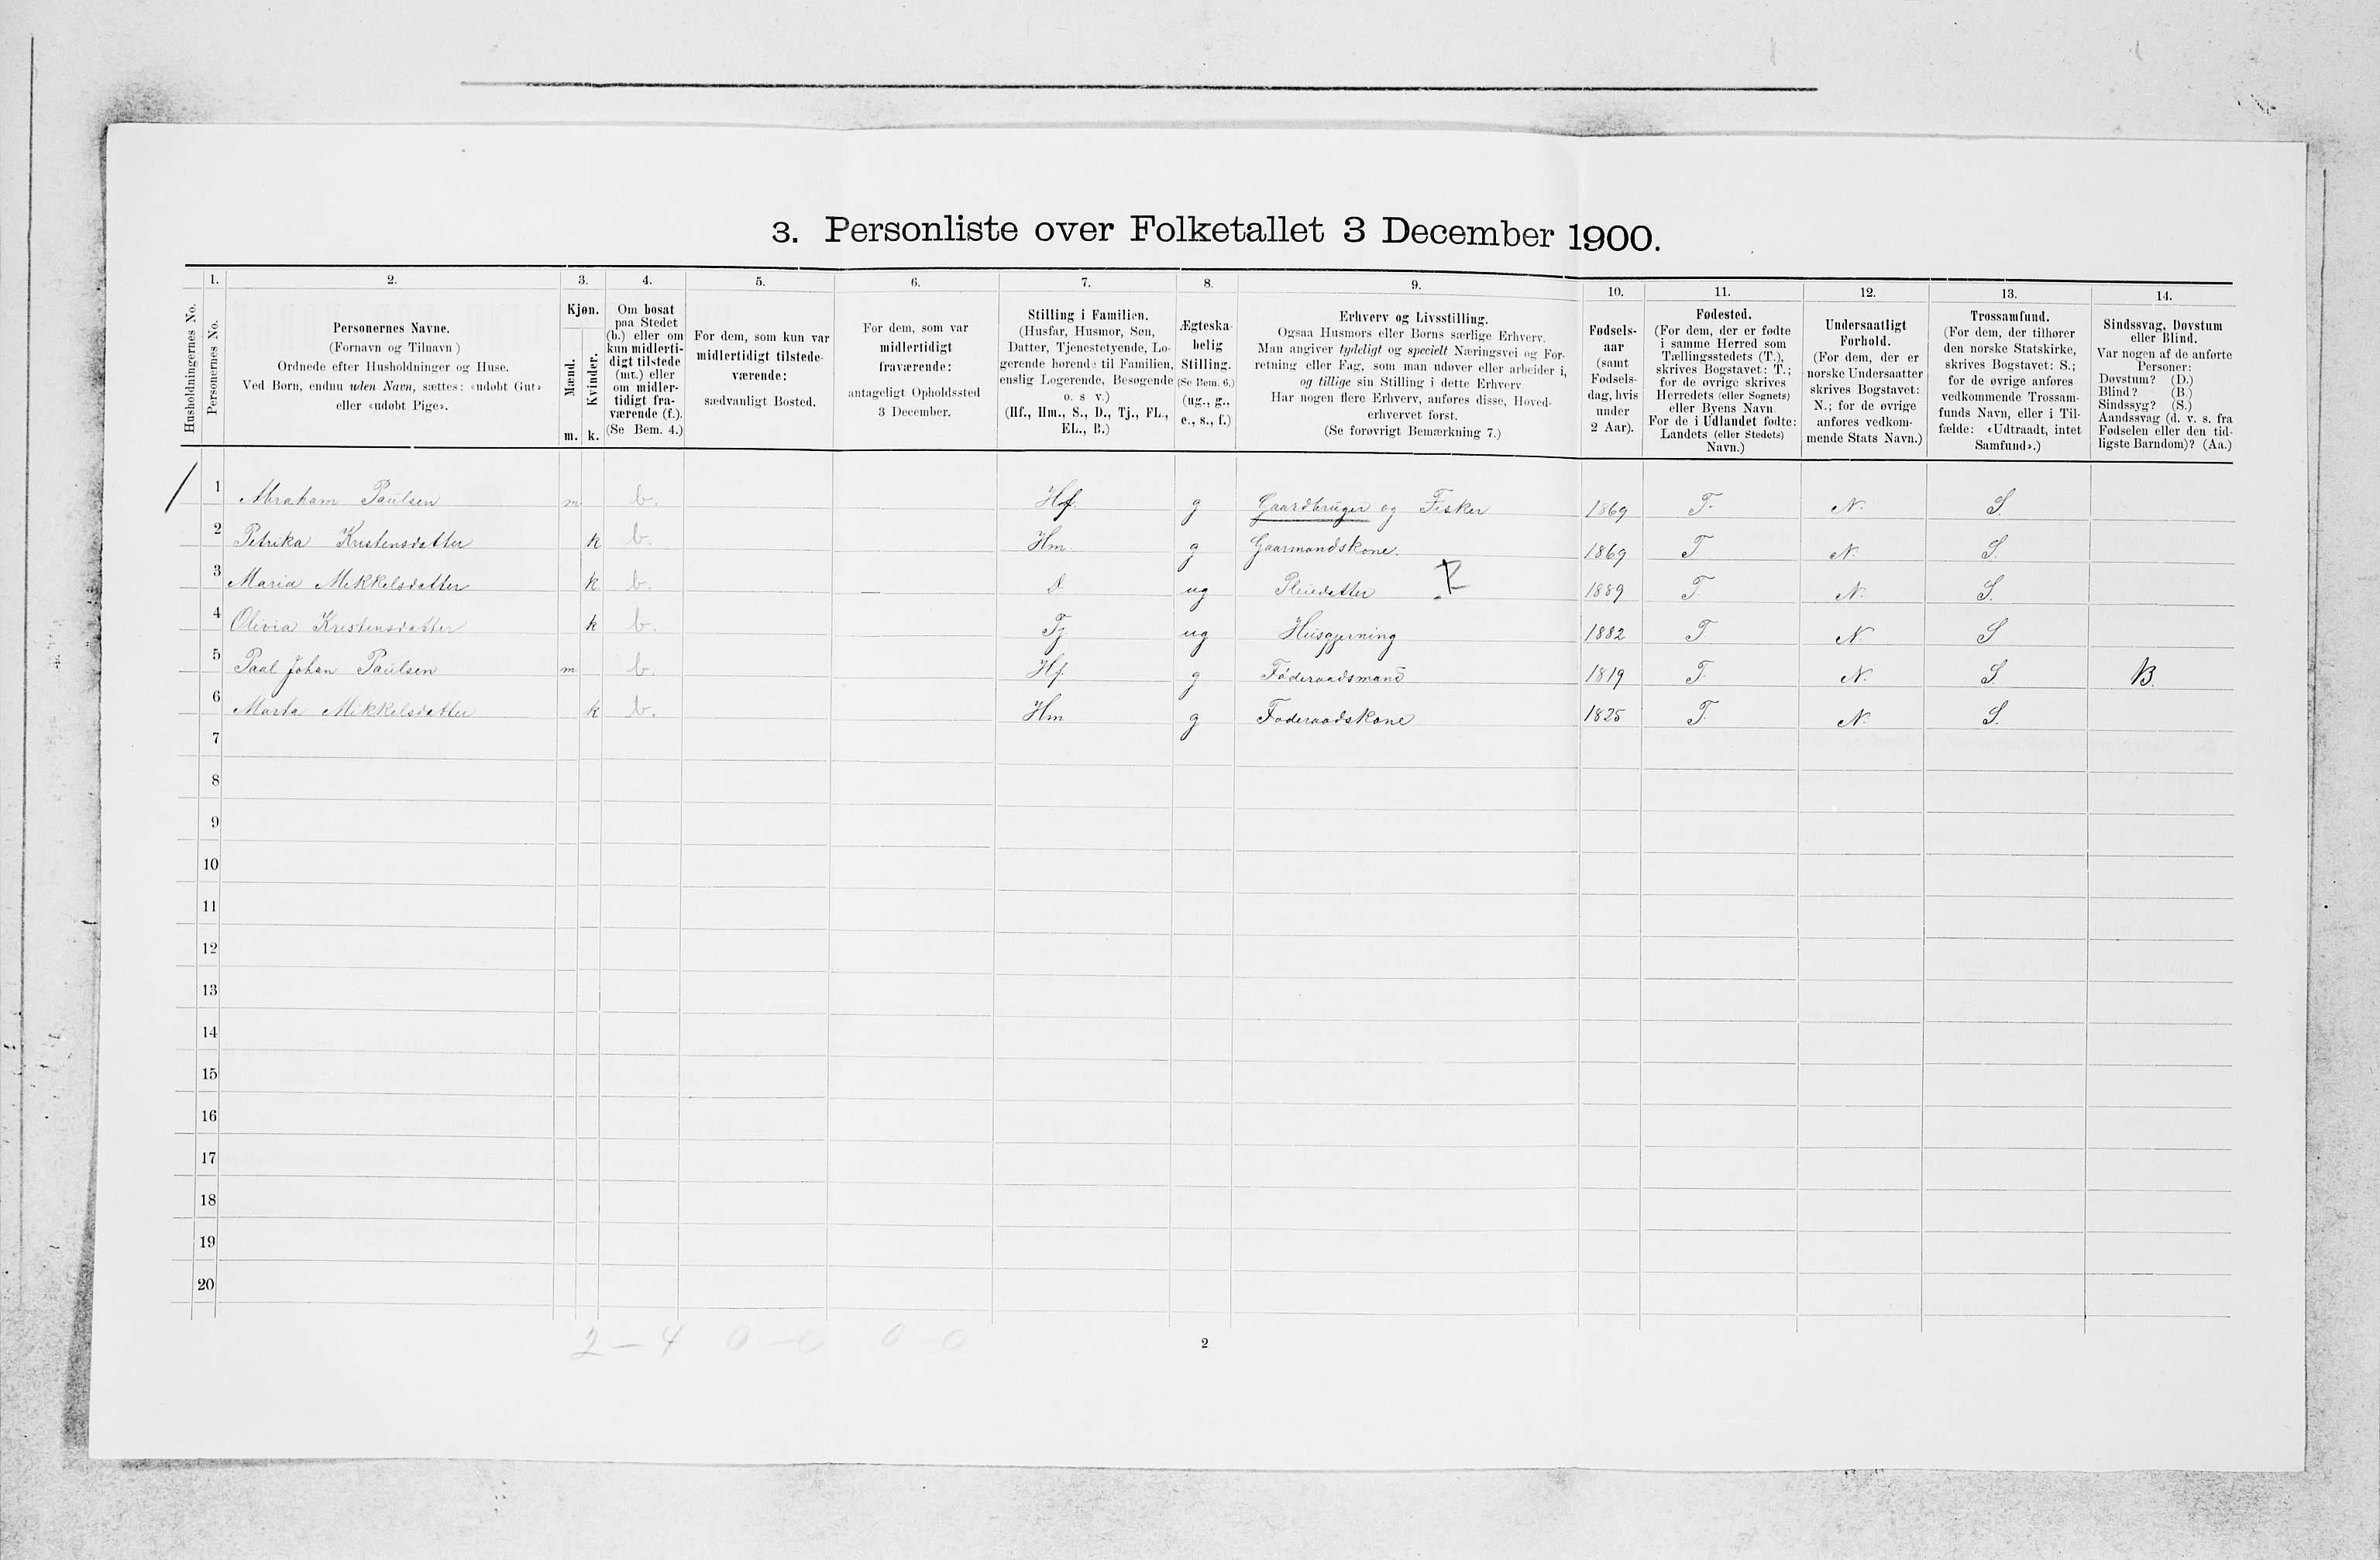 3. Personliste over Folketallet 3 December 1900.
Husholdningernes No.
1.
Personernes No.
2.
Personernes Navne.
(Fornavn og Tilnavn)
Ordnede efter Husholdninger og Huse.
Ved Børn, endnu uden Navn, sættes: «udøbt Gut»
eller «udøbt Pige».
3.
Kjøn.
Mænd.
Kvinder.
m. k.
4.
Om bosat
paa Stedet
(b.) eller om
kun midlerti-
digt tilstede
(mt.) eller
om midler-
tidigt fra-
værende (f.).
(Se Bem. 4.)
5.
For dem, som kun var
midlertidigt tilstede-
værende:
sædvanligt Bosted.
6.
For dem, som var
midlertidigt
fraværende:
antageligt Opholdssted
3 December.
7.
Stilling i Familien.
(Husfar, Husmor, Søn,
Datter, Tjenestetyende, Lo-
gerende hørende til Familien,
enslig Logerende, Besøgende
o. s v.)
(Hf., Hm., S., D., Tj., FL.,
EL., B.)
8.
Ægteska-
belig
Stilling.
(Se Bem. 6.)
(ug., g.,
e., s., f.)
9.
Erhverv og Livsstilling.
Ogsaa Husmors eller Børns særlige Erhverv.
Man angiver tydeligt og specielt Næringsvei og For-
retning eller Fag, som man udøver eller arbeider i,
og tillige sin Stilling i dette Erhverv.
Har nogen flere Erhverv, anføres disse, Hoved-
erhvervet først.
(Se forøvrigt Bemærkning 7.)
10.
Fødsels-
aar
(samt
Fødsels-
dag, hvis
under
2 Aar).
11.
Fødested.
(For dem, der er fødte
i samme Herred som
Tællingsstedets (T.),
skrives Bogstavet: T.;
for de øvrige skrives
Herredets (eller Sognets)
eller Byens Navn.
For de i Udlandet fødte:
Landets (eller Stedets)
Navn.)
12.
Undersaatligt
Forhold.
(For dem, der er
norske Undersaatter
skrives Bogstavet:
N.; for de øvrige
anføres vedkom-
mende Stats Navn.)
13.
Trossamfund.
(For dem, der tilhører
den norske Statskirke,
skrives Bogstavet: S.;
for de øvrige anføres
vedkommende Trossam-
funds Navn, eller i Til-
fælde: «Udtraadt, intet
Samfund».)
14.
Sindssvag, Døvstum
eller Blind.
Var nogen af de anførte
Personer:
Døvstum? (D.)
Blind? (B.)
Sindssyg? (S.)
Aandssvag (d. v. s. fra
Fødselen eller den tid-
ligste Barndom)? (Aa.)
1 Abraham Paulsen m b. Hf. g Gaardbruger og Fisker 1869 T. N. S.
2 Petrika Kristensdatter k b. Hm. g Gaarmandskone. 1869 T N. S.
3 Maria Mikkelsdatter k. b. — d ug Pleiedatter 1889 T N. S.
4 Olivia Kristensdatter k b. Tj ug Husgjerning 1882 T N S
5 Paal Johan Paulsen m b. Hf. g Føderaadsmand 1819 T. N. S. B.
6 Marta Mikkelsdatter k b. Hm g Føderaadskone 1825 T. N. S.
7
8
9
10
11
12
13
14
15
16
17
18
19
20
2 – 4 0 – 0 0 – 0
2